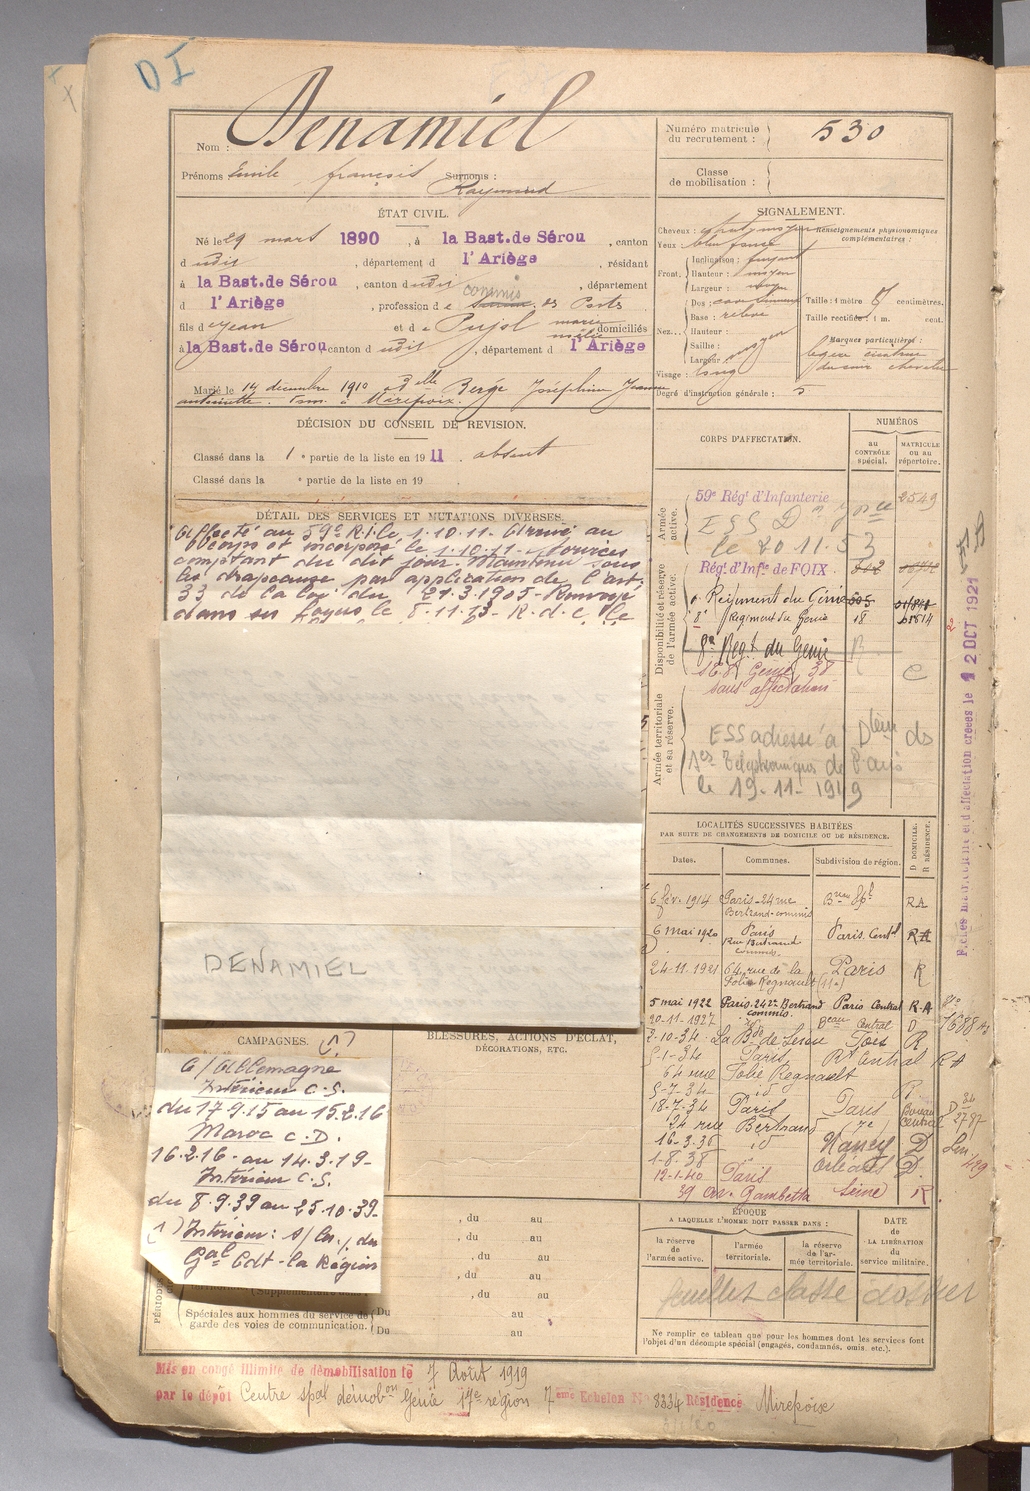 D I
Nom : Denamiel
Prénoms Emile françois Surnoms : Raymond
Numéro matricule du recrutement : 530
Classe de mobilisation :
ÉTAT CIVIL.
Né le 29 mars 1890, à la Bast. de Sérou, canton
d udit, département d l'Ariège, résidant
à la Bast. de Sérou, canton d udit, département
d l'Ariège, profession d e commis des Postes
fils d e Jean et d e Pujol marie domiciliés
à la Bast. de Sérou canton d udit, département d l'Ariège
Marié le 14 décembre 1910 à Mlle Berge Joséphine Jeanne
antoinette. Dom. à Mirepoix.
SIGNALEMENT.
Cheveux : chat. moyen
Yeux bleu foncé
Front. Inclinaison : fuyant
Hauteur : moyen
Largeur : moyen
Nez. Dos :
Base : relevé
Hauteur :
Saillie :
Largeur moyen
Visage : long
Renseignements physionomiques complémentaires :
Taille : 1 mètre centimètres.
Taille rectifiée : 1 m. cent.
Marques particulières :
légère cicatrice
Degré d'instruction générale : 5
DÉCISION DU CONSEIL DE REVISION.
Classé dans la 1e partie de la liste en 1911. absent
Classé dans la e partie de la liste en 19
DÉTAIL DES SERVICES ET MUTATIONS DIVERSES.
Affecté au 59e R.I. le 1.10.11 - Arrivé au
corps et incorporé le 1.10.11 - Services
comptant du dit jour. Maintenu sous
les drapeaux par application de l'art.
33 de la loi du 21.3.1905 - Renvoyé
dans ses foyers le 8.11.13 - R.d.C. le
DENAMIEL
CORPS D'AFFECTATION.
NUMÉROS
au contrôle spécial.
MATRICULE ou au répertoire.
Armée active.
59e Régt d'Infanterie 2549
ESS
le 20 11. 53
Disponibilité et réserve de l'armée active.
Régt d'Infie de FOIX
Régiment du Génie
8e Régiment du Génie 18
8e Regt du Genie R
sans affectation
Armée territoriale et sa réserve.
ESS adressé à
Télephoniques de Paris
le 19-11-1949
Fiches matricule et d'affectation créées le 12 OCT 1921
LOCALITÉS SUCCESSIVES HABITÉES
PAR SUITE DE CHANGEMENTS DE DOMICILE OU DE RÉSIDENCE.
Dates. Communes. Subdivision de région. D DOMICILE. R RÉSIDENCE.
6 fév. 1914 Paris - 24 rue Bertrand - commis RA
6 mai 1920 Paris Rue Bertrand commis Paris Centl RA
24-11-1921 64, rue de la Folie Regnault (11e) Paris R
5 mai 1922 Paris. 24 r. Bertrand commis. Paris Central R-A
20-11-1927 id Beau Central D
2-10-34 La Bde de Serou Foix R
5-1-34 Paris Rt Central RA
64 rue Folie Regnault
5-7-34 id R
18-7-34 Paris Paris Bureau Central
24 rue Bertrand (7e)
16-3-36 id Nancy D
1-8-38 Orléans D
12-1-40 Paris
39 av. Gambetta Seine R
CAMPAGNES. (1)
C/Allemagne
Intérieur C.S.
du 17.9.15 au 15.2.16
Maroc C.D.
16.2.16 - au 14.3.19 -
Intérieur C.S.
du 8.9.39 au 25.10.39 -
(1) Intérieur : du
Gal Cdt - la Région
BLESSURES, ACTIONS D'ÉCLAT,
DÉCORATIONS, ETC.
, du au
, du au
, du au
, du au
, du au
Spéciales aux hommes du service de garde des voies de communication. Du au
Du au
ÉPOQUE
A LAQUELLE L'HOMME DOIT PASSER DANS :
la réserve de l'armée active.
l'armée territoriale.
la réserve de l'armée territoriale.
DATE de LA LIBÉRATION du service militaire.
feuillet classé dossier
Ne remplir ce tableau que pour les hommes dont les services font
l'objet d'un décompte spécial (engagés, condamnés, omis. etc.).
Mis en congé illimité de démobilisation le 7 Août 1919
par le dépôt Centre spal démobon Génie 17e région 7eme Echelon No 8334 Résidence Mirepoix